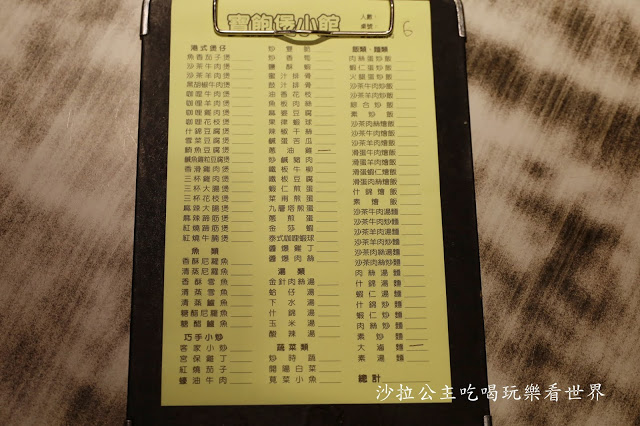 寶飽煲小館
人數：
桌號：
6
港式煲仔
魚香茄子煲
沙茶牛肉煲
沙茶羊肉煲
黑胡椒牛肉煲
咖哩牛肉煲
咖哩羊肉煲
咖哩雞肉煲
咖哩花枝煲
什錦豆腐煲
雪菜豆腐煲
鮪魚豆腐煲
鹹魚雞粒豆腐煲
香滑雞肉煲
三杯雞肉煲
三杯大腸煲
三杯花枝煲
麻辣大腸煲
麻辣蹄筋煲
紅燒蹄筋煲
紅燒牛腩煲
魚類
香酥尼羅魚
清蒸尼羅魚
香酥雪魚
清蒸雪魚
清蒸鱸魚
糖醋尼羅魚
糖醋鱸魚
巧手小炒
客家小炒
宮保雞丁
紅燒茄子
蠔油牛肉
炒雙鮮
炒香筍
鹽酥蝦
蜜汁排骨
豉汁排骨
油香花枝
魚板肉絲
麻婆豆腐
果律蝦球
辣椒干絲
鹹蛋苦瓜
蔥油雞
炒鹹豬肉
鐵板牛柳
鐵板豆腐
蝦仁煎蛋
菜甫煎蛋
九層塔煎蛋
蔥煎蛋
金莎蝦
泰式咖哩蝦球
醬爆雞丁
醬爆肉絲
湯類
金針肉絲湯
蛤仔湯
下水湯
什錦湯
玉米湯
酸辣湯
蔬菜類
炒時蔬
開陽白菜
莧菜小魚
飯類、麵類
肉絲蛋炒飯
蝦仁蛋炒飯
火腿蛋炒飯
沙茶牛肉炒飯
沙茶羊肉炒飯
綜合炒飯
素炒飯
沙茶肉絲燴飯
沙茶牛肉燴飯
沙茶羊肉燴飯
滑蛋牛肉燴飯
滑蛋蝦仁燴飯
滑蛋肉絲燴飯
什錦燴飯
素燴飯
沙茶牛肉湯麵
沙茶羊肉湯麵
沙茶牛肉炒麵
沙茶羊肉炒麵
沙茶肉絲湯麵
沙茶肉絲炒麵
肉絲湯麵
什錦湯麵
蝦仁湯麵
什錦炒麵
蝦仁炒麵
肉絲炒麵
素炒麵
大滷麵
素湯麵
總計
沙拉公主吃喝玩樂看世界